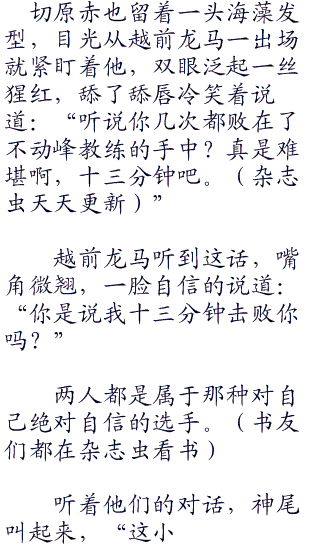 切原赤也留着一头海藻发
型，目光从越前龙马一出场
就紧盯着他，双眼泛起一丝
猩红，舔了舔唇冷笑着说
道：“听说你几次都败在了
不动峰教练的手中？真是难
堪啊，十三分钟吧。（杂志
虫天天更新）”
越前龙马听到这话，嘴
角微翘，一脸自信的说道：
“你是说我十三分钟击败你
吗？”
两人都是属于那种对自
己绝对自信的选手。（书友
们都在杂志虫看书）
听着他们的对话，神尾
叫起来，“这小